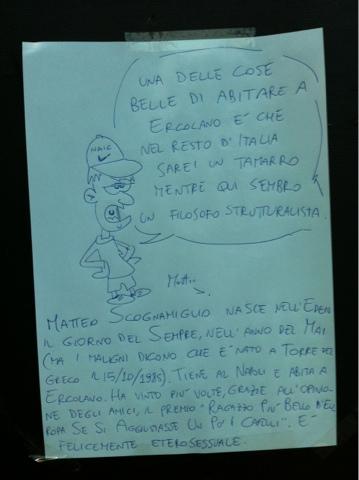 UNA DELLE COSE
BELLE DI ABITARE A
ERCOLANO E' CHE
NEL RESTO D'ITALIA
SAREI UN TAMARRO
MENTRE QUI SEMBRO
UN FILOSOFO STRUTTURALISTA.
NAIC
MATTEO SCOGNAMIGLIO NASCE NELL'EDEN
IL GIORNO DEL SEMPRE, NELL'ANNO DEL MAI
(MA I MALIGNI DICONO CHE E' NATO A TORRE DEL
GRECO IL 15/10/1985). TIENE AL NAPOLI E ABITA A
ERCOLANO. HA VINTO PIU' VOLTE, GRAZIE ALL'OPINIO-
NE DEGLI AMICI, IL PREMIO "RAGAZZO PIU' BELLO D'EU-
ROPA SE SI AGGIUSTASSE UN PO' I CAPELLI". E'
FELICEMENTE ETEROSESSUALE.